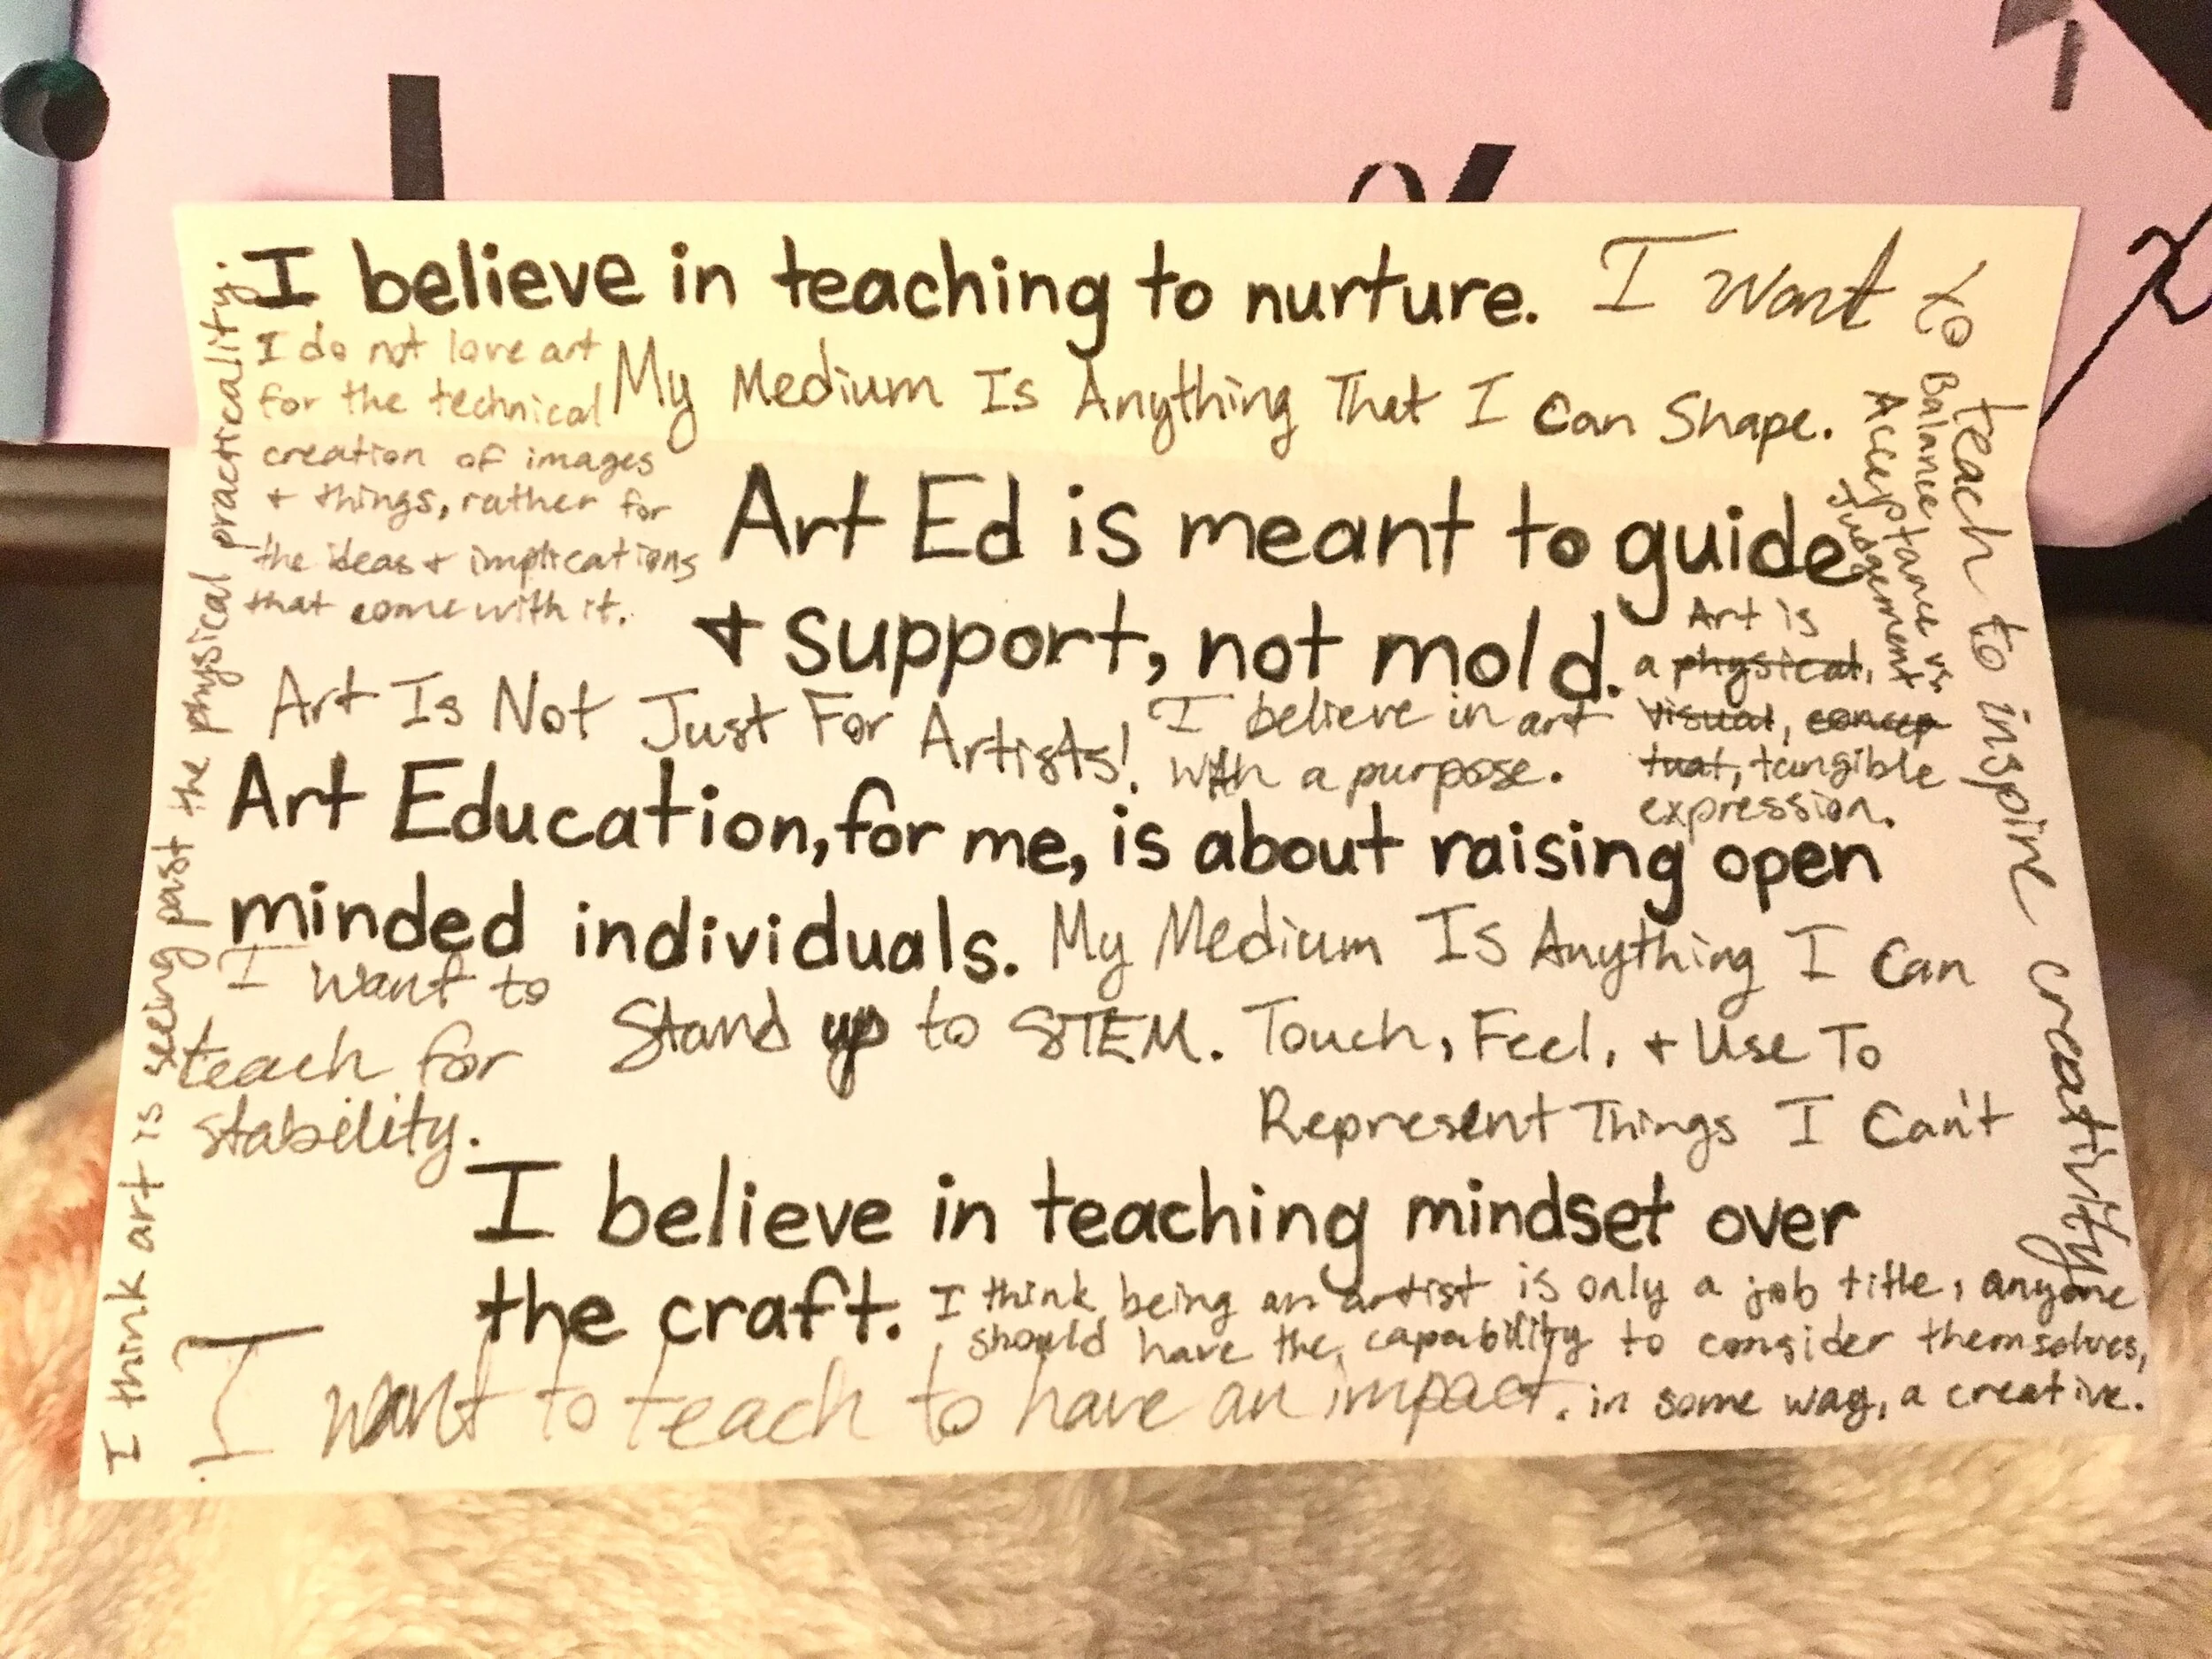 I believe in teaching to nurture.
I want to teach to inspire creativity
I do not love art
for the technical
creation of images
+ things, rather for
the ideas + implications
that come with it.
My Medium Is Anything That I Can Shape.
Balance vs.
Acceptance
Judgement
Art Ed is meant to guide
+ support, not mold.
Art is
a physical,
visual, concep
tual, tangible
expression.
Art Is Not Just For Artists!
I believe in art
with a purpose.
Art Education, for me, is about raising open
minded individuals.
My Medium Is Anything I Can
Touch, Feel, + Use To
Represent Things I Can't
I want to
teach for
stability.
Stand up to STEM.
I believe in teaching mindset over
the craft.
I think being an artist is only a job title, anyone
should have the capability to consider themselves,
in some way, a creative.
I want to teach to have an impact.
I think art is seeing past the physical practicality.